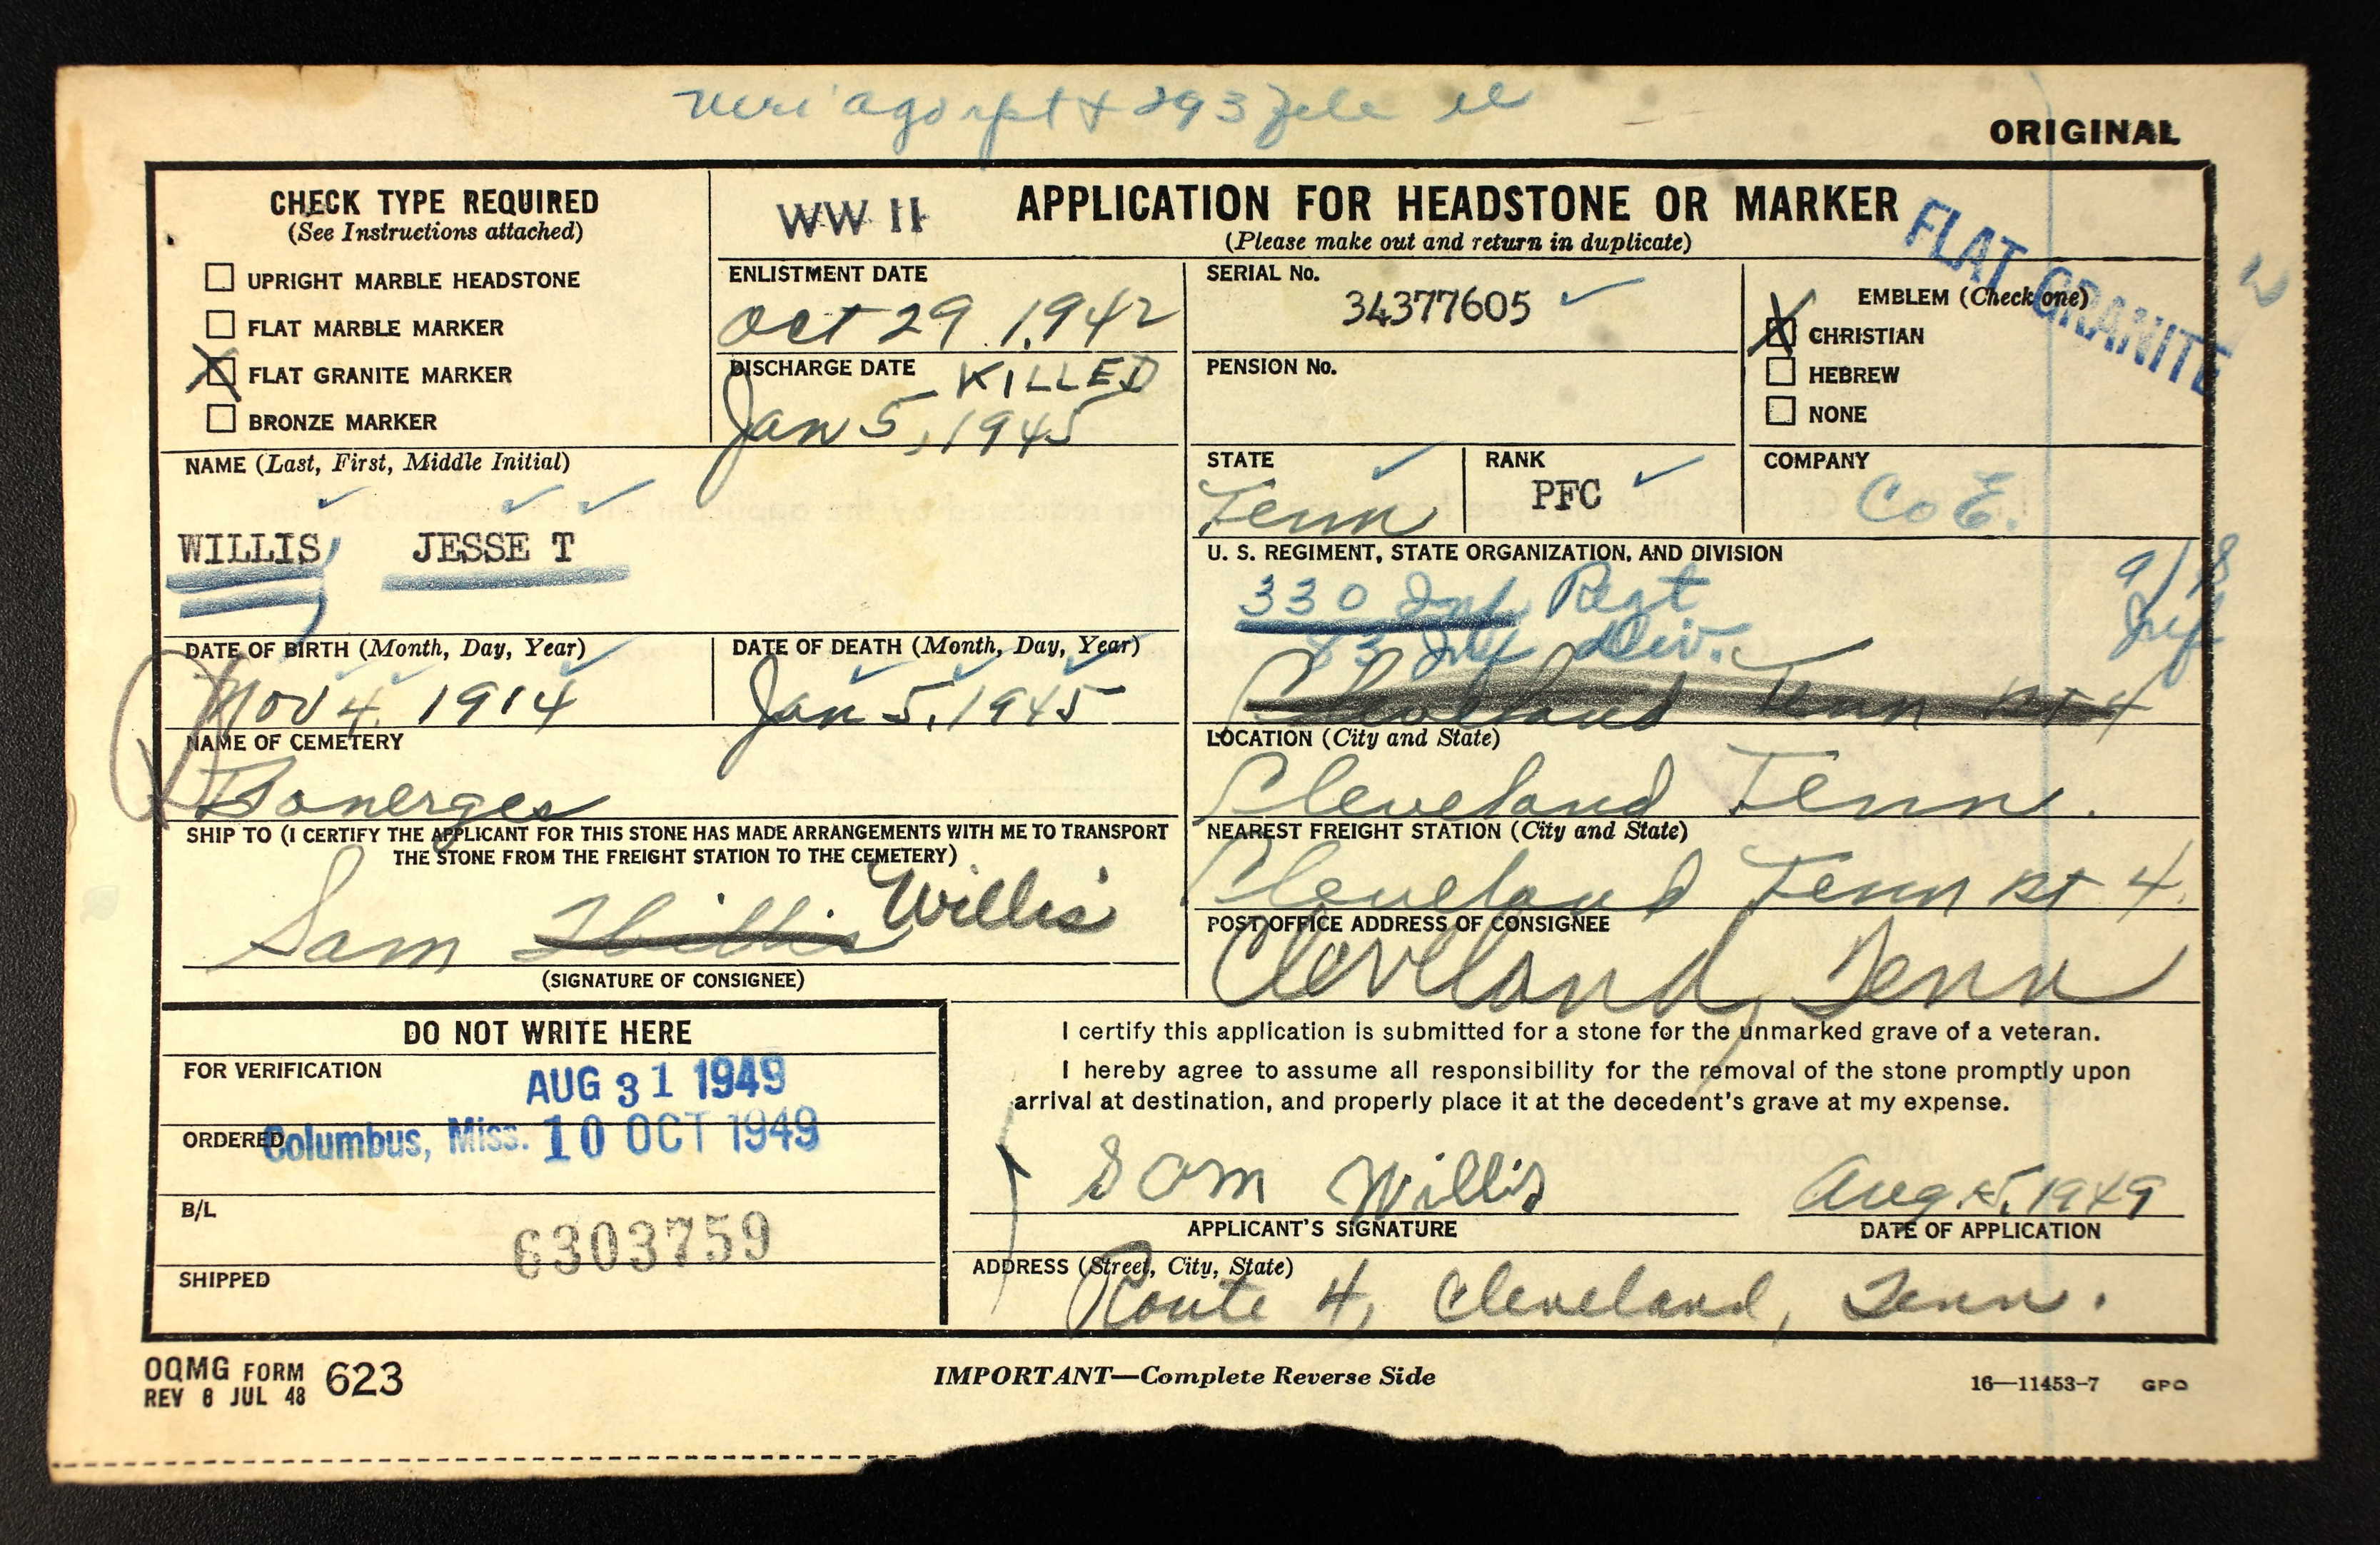 veri ago rpt + 293 file
ORIGINAL
CHECK TYPE REQUIRED
(See Instructions attached)
UPRIGHT MARBLE HEADSTONE
FLAT MARBLE MARKER
X FLAT GRANITE MARKER
BRONZE MARKER
WW II
APPLICATION FOR HEADSTONE OR MARKER
(Please make out and return in duplicate)
FLAT GRANITE
ENLISTMENT DATE
Oct 29 1942
DISCHARGE DATE KILLED
Jan 5, 1945
SERIAL No.
34377605
PENSION No.
EMBLEM (Check one)
X CHRISTIAN
HEBREW
NONE
NAME (Last, First, Middle Initial)
WILLIS, JESSE T
STATE
Tenn
RANK
PFC
COMPANY
Co E.
U. S. REGIMENT, STATE ORGANIZATION, AND DIVISION
330 Inf Regt
83 Inf Div.
Cleveland Tenn Rt 4
9/8
DATE OF BIRTH (Month, Day, Year)
Nov 4, 1914
DATE OF DEATH (Month, Day, Year)
Jan 5, 1945
NAME OF CEMETERY
Bonerges
LOCATION (City and State)
Cleveland Tenn.
SHIP TO (I CERTIFY THE APPLICANT FOR THIS STONE HAS MADE ARRANGEMENTS WITH ME TO TRANSPORT
THE STONE FROM THE FREIGHT STATION TO THE CEMETERY)
Sam Willis
(SIGNATURE OF CONSIGNEE)
NEAREST FREIGHT STATION (City and State)
Cleveland Tenn Rt 4
POST OFFICE ADDRESS OF CONSIGNEE
Cleveland, Tenn
DO NOT WRITE HERE
FOR VERIFICATION
AUG 31 1949
ORDERED
Columbus, Miss. 10 OCT 1949
B/L
6303759
SHIPPED
I certify this application is submitted for a stone for the unmarked grave of a veteran.
I hereby agree to assume all responsibility for the removal of the stone promptly upon
arrival at destination, and properly place it at the decedent's grave at my expense.
Sam Willis
APPLICANT'S SIGNATURE
Aug. 15, 1949
DATE OF APPLICATION
ADDRESS (Street, City, State)
Route 4, Cleveland, Tenn.
OQMG FORM 623
REV 8 JUL 48
IMPORTANT—Complete Reverse Side
16—11453-7 GPO